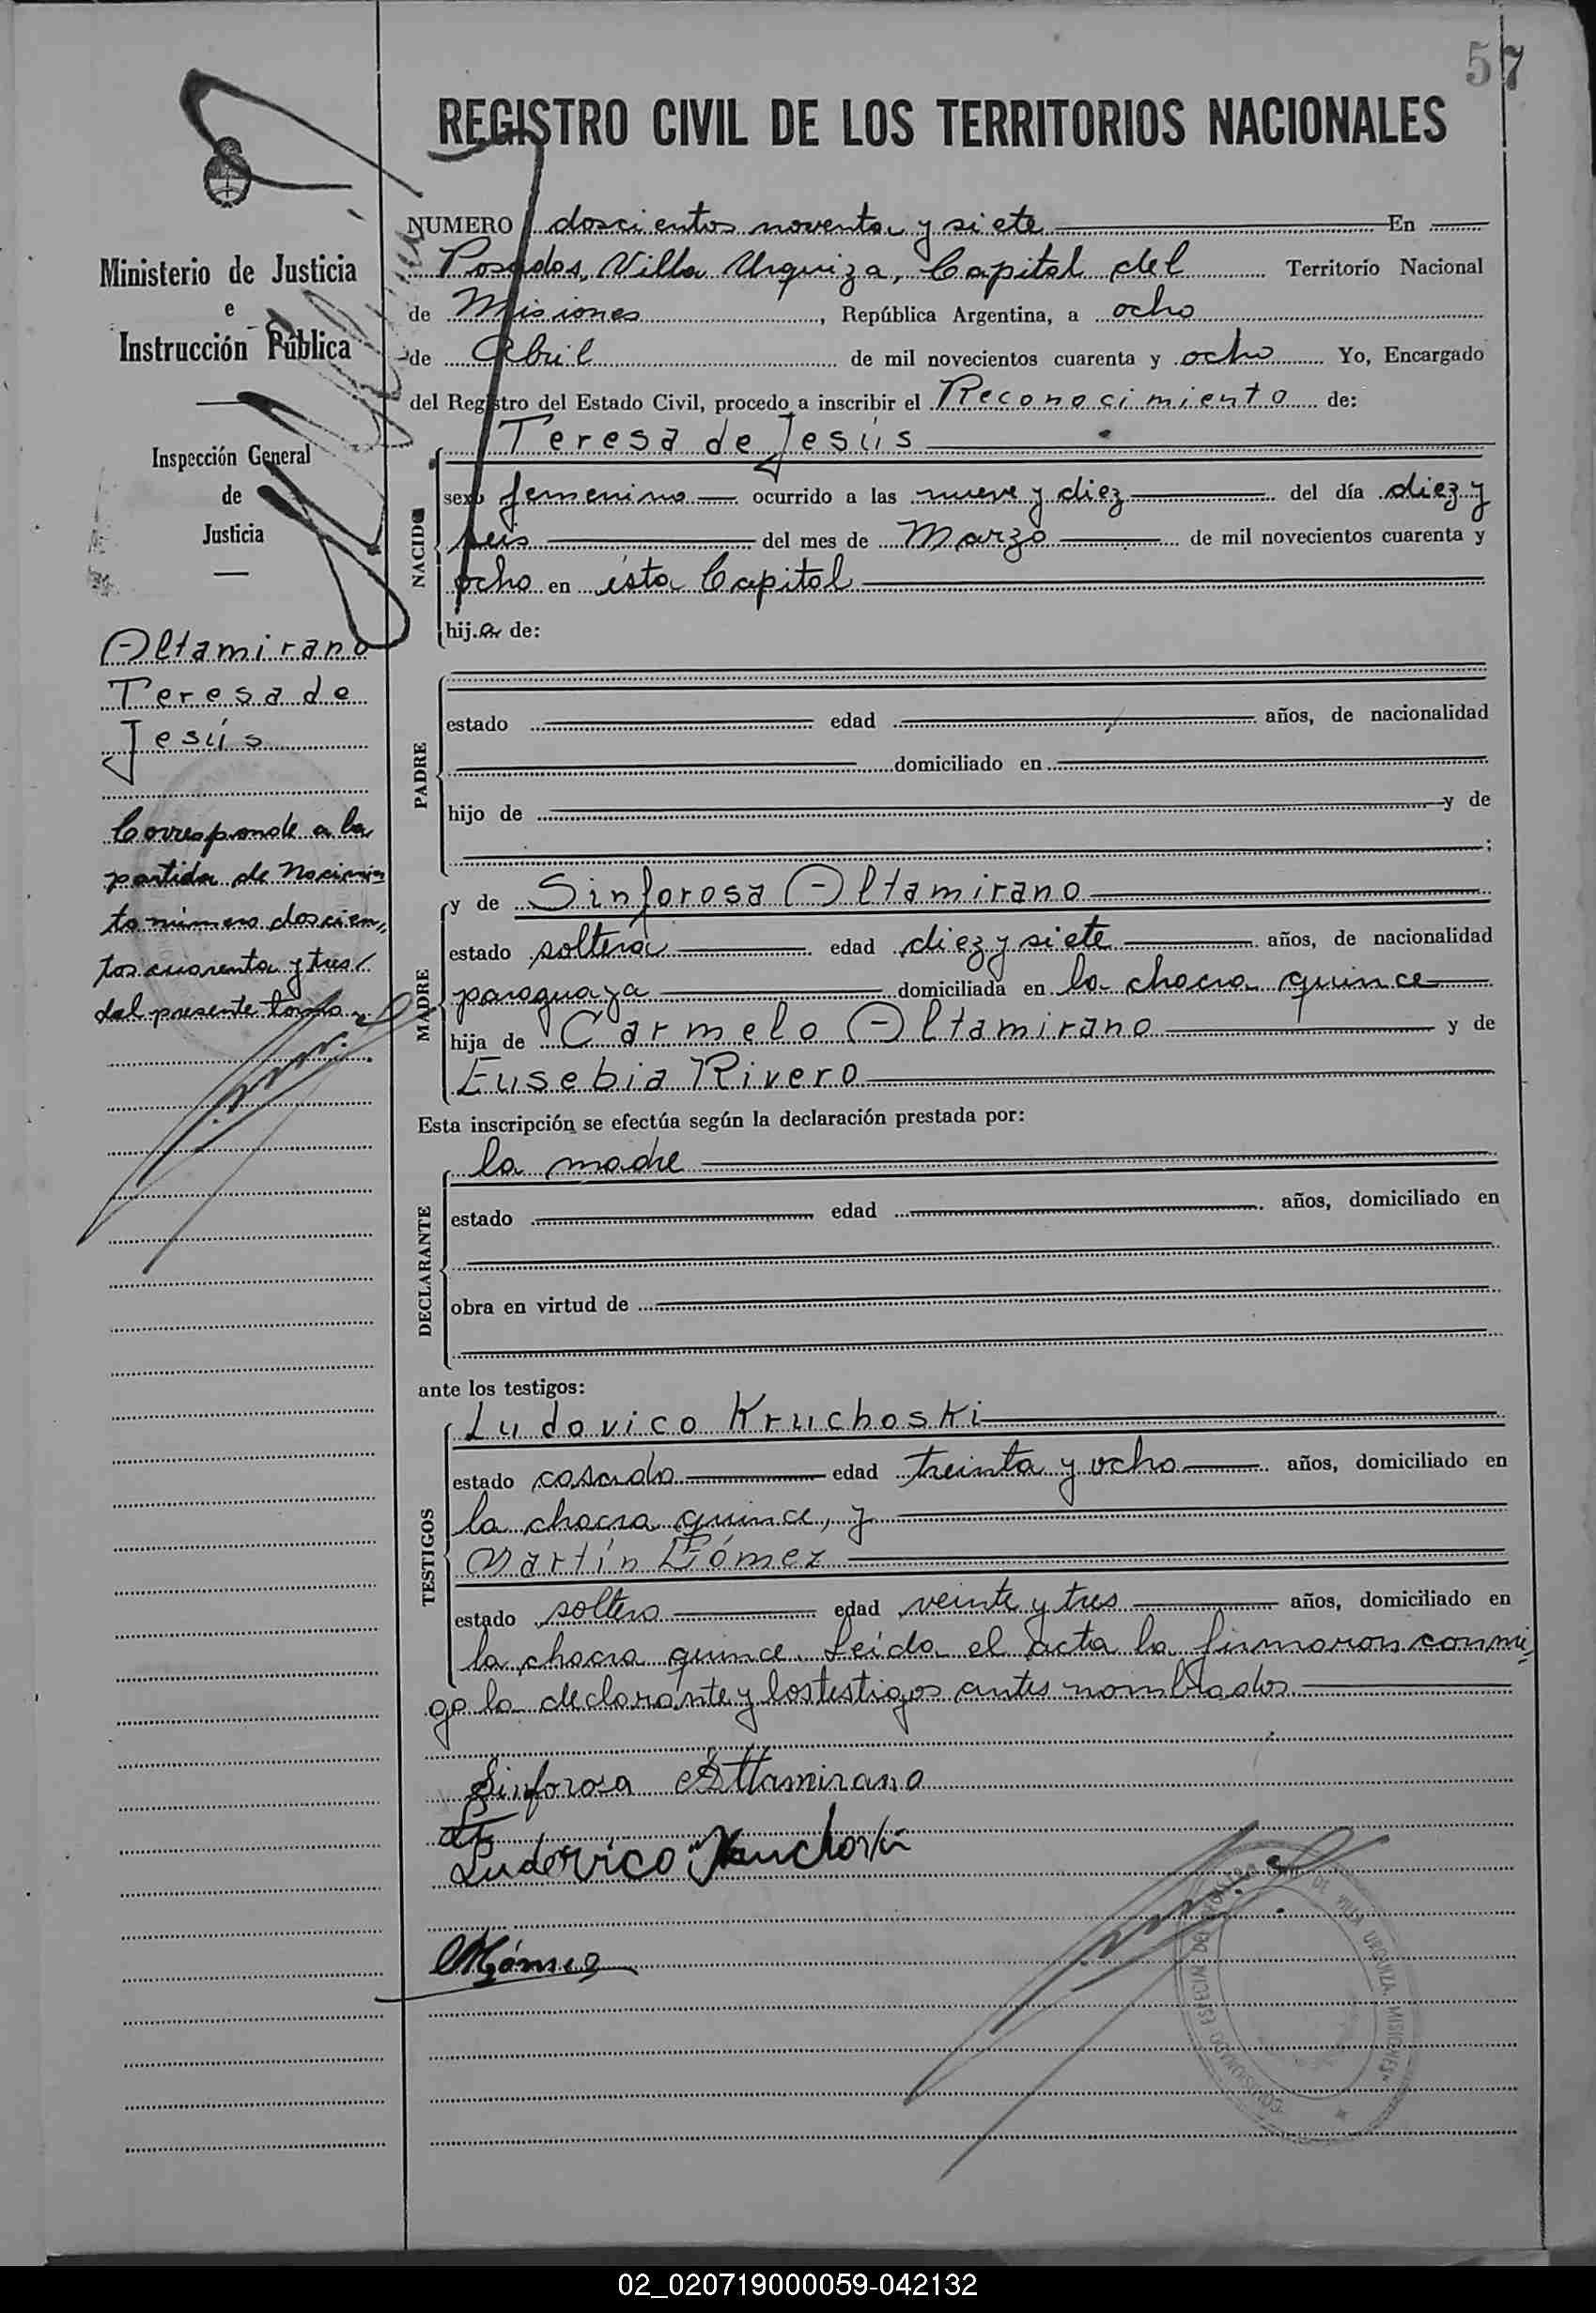 57
REGISTRO CIVIL DE LOS TERRITORIOS NACIONALES
Ministerio de Justicia
e
Instrucción Pública
Inspección General
de
Justicia
Altamirano
Teresa de
Jesús
Corresponde a la
partida de Nacimien
to número doscien,,
tos cuarenta y tres
del presente tomo
NUMERO doscientos noventa y siete En
Posadas, Villa Urquiza, Capital del Territorio Nacional
de Misiones, República Argentina, a ocho
de Abril de mil novecientos cuarenta y ocho Yo, Encargado
del Registro del Estado Civil, procedo a inscribir el Reconocimiento de:
Teresa de Jesús
NACIDO
sexo femenino ocurrido a las nueve y diez del día diez y
seis del mes de Marzo de mil novecientos cuarenta y
ocho en ésta Capital
hija de:
PADRE
estado edad años, de nacionalidad
domiciliado en
hijo de y de
;
MADRE
y de Sinforosa Altamirano
estado soltera edad diez y siete años, de nacionalidad
paraguaya domiciliada en la chacra quince
hija de Carmelo Altamirano y de
Eusebia Rivero
Esta inscripción se efectúa según la declaración prestada por:
DECLARANTE
la madre
estado edad años, domiciliado en
obra en virtud de
ante los testigos:
TESTIGOS
Ludovico Kruchoski
estado casado edad treinta y ocho años, domiciliado en
la chacra quince, y
Martín Gómez
estado soltero edad veinte y tres años, domiciliado en
la chacra quince. Leída el acta la firmaron conmi,,
go la declarante y los testigos antes nombrados.
Sinforosa Altamirano
Ludovico
MGómez
02_020719000059-042132